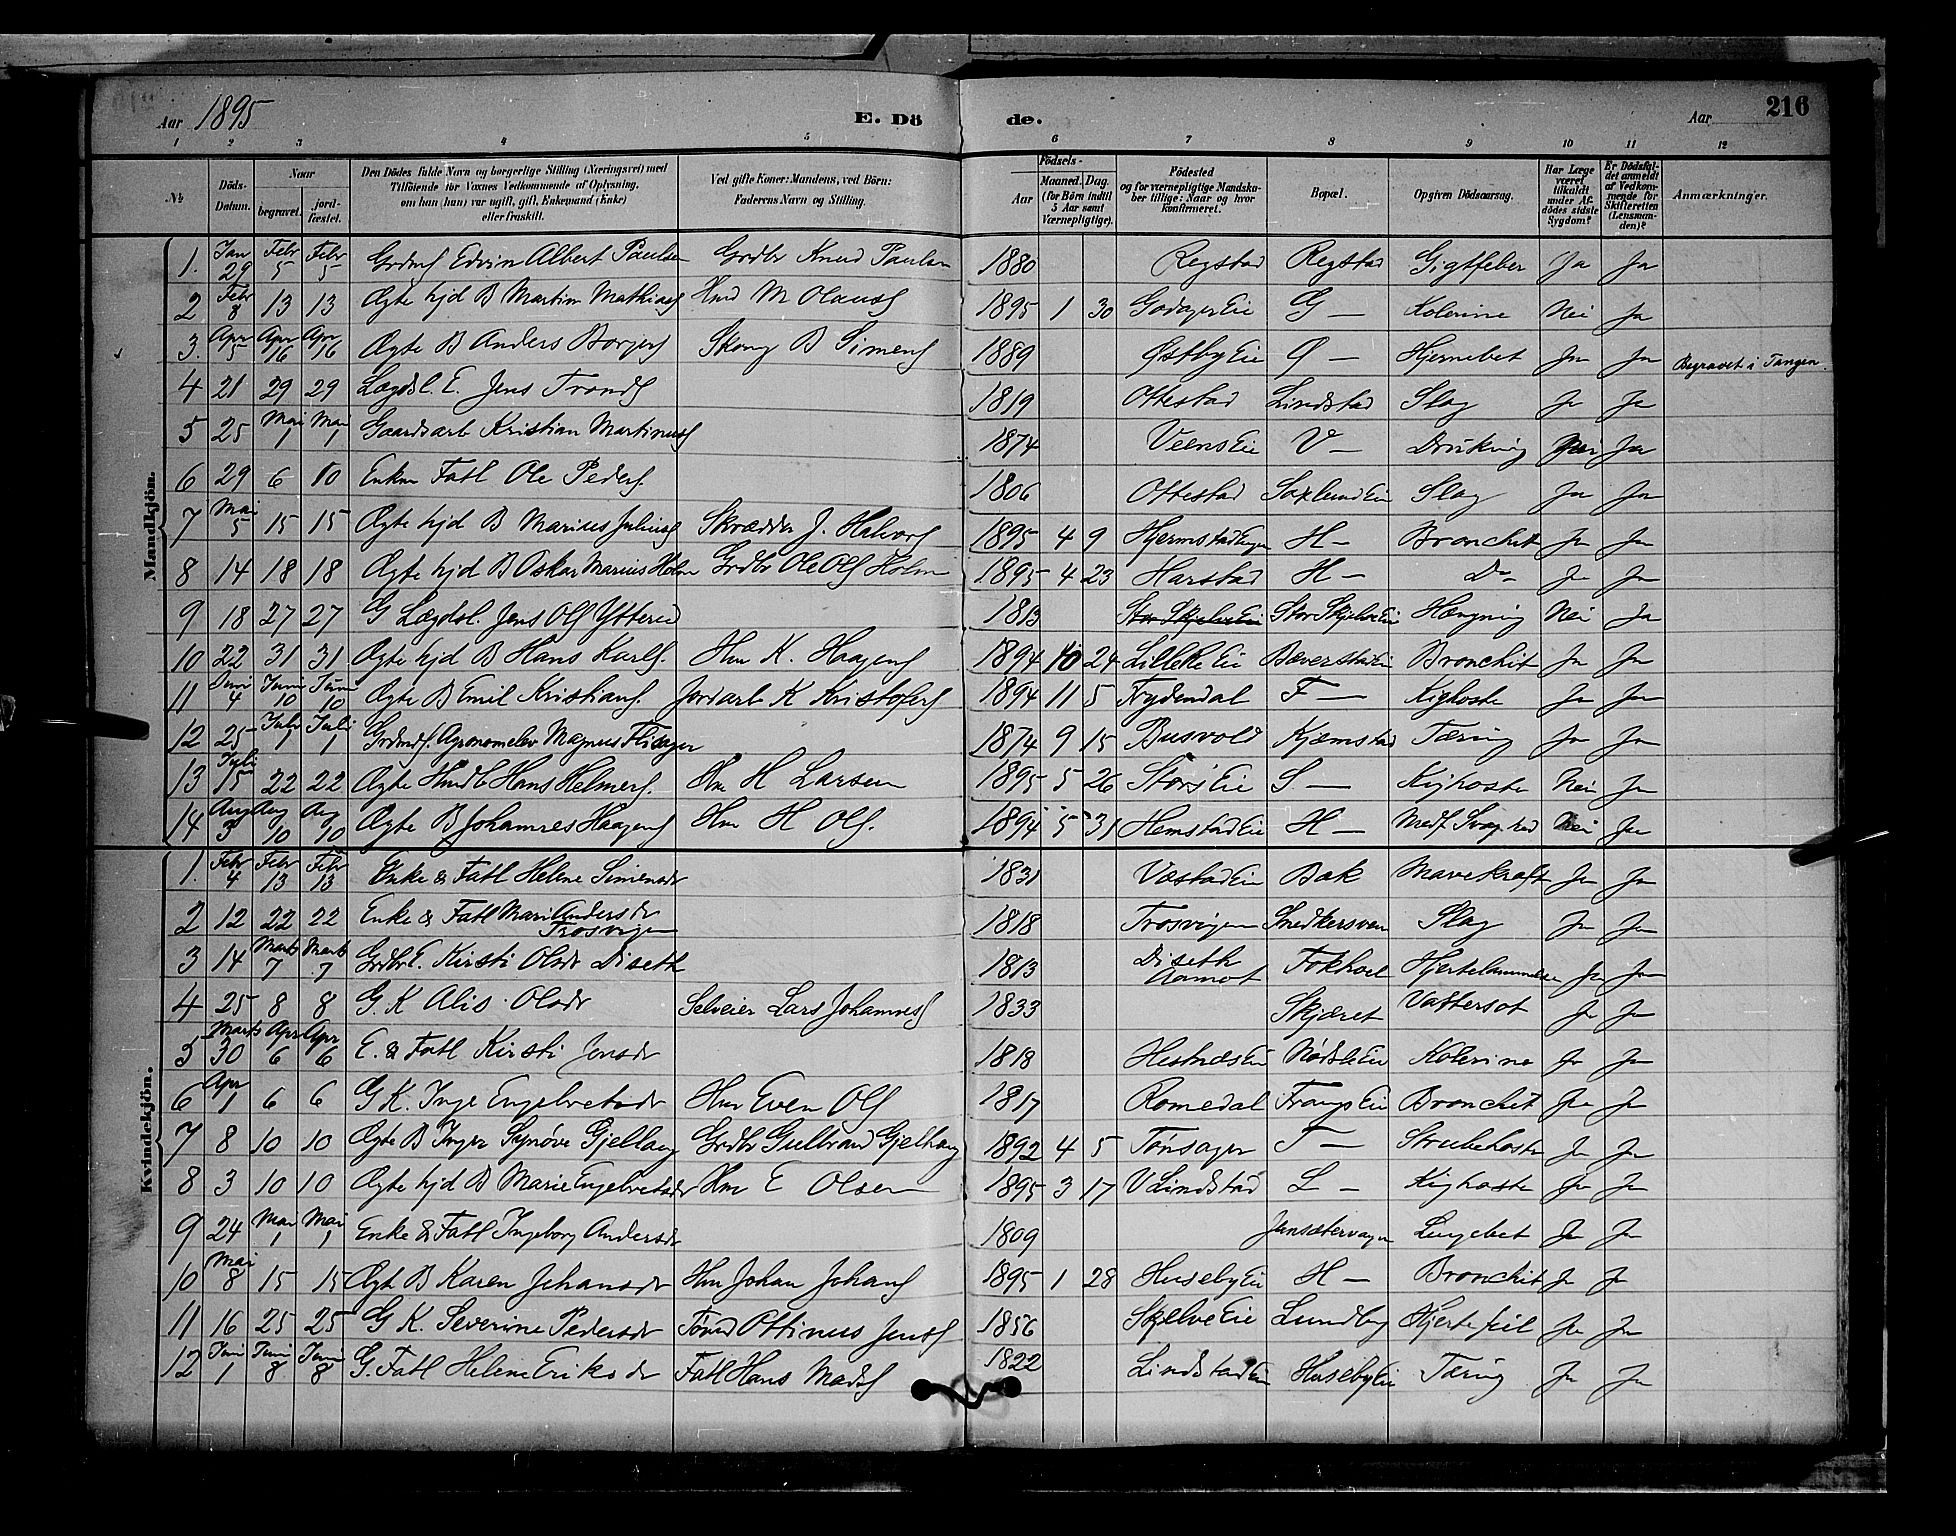 216
Aar 1895 E. Dö de. Aar
1 2 3 4 5 6 7 8 9 10 11 12
№
Döds-Datum.
Naar
begravet.
jord-fæstet.
Den Dödes fulde Navn og borgerlige Stilling (Næringsvei) med
Tilföiende for Voxnes Vedkommende af Oplysning,
om han (hun) var ugift, gift, Enkemand (Enke)
eller fraskilt.
Ved gifte Koner: Mandens, ved Börn:
Faderens Navn og Stilling.
Födsels-
Aar
Maaned. Dag.
(for Börn indtil
5 Aar samt
Værnepligtige).
Födested
og for værnepligtige Mandska-
ber tillige: Naar og hvor
Konfirmeret.
Bopæl.
Opgiven Dödsaarsag.
Har Læge
været
tilkaldt
under Af-
dödes sidste
Sygdom?
Er Dödsfal-
det anmeldt
af Vedkom-
mende for
Skifteretten
(Lensman-
den)?
Anmærkninger
Mandkjön.
1. Jan 29 Febr 5 Febr 5 Edvin Albert Paulsen Grdbr Knud Paulsen 1880 Regstad Regstad Gigtfeber Ja Ja
2 Febr 8 13 13 Ægte hjd B Martin Mathias Hmd M Olaus 1895 1 30 Godager Eie G — Kolerine Nei Ja
3. Apr 5 Apr 16 Apr 16 Ægte B Anders Borger B Simens 1889 Østby Eie Ø — Hjernebet Ja Ja Begravet i Tangen.
4 21 29 29 Lægdsl. E. Jens Tronds 1819 Ottestad Lindstad Slag Ja Ja
5 25 Mai 1 Mai 1 Gaardsarb Kristian Martinus 1874 Veens Eie V — Drukning Nei Ja
6 29 6 10 Enkm Fatl Ole Peders 1806 Ottestad Saxlund Eie Slag Ja Ja
7 Mai 5 15 15 Ægte hjd B Marius Julius Skrædder J. Halvors 1895 4 9 H — Bronchit Ja Ja
8 14 18 18 Ægte hjd B Oskar Marius Holm Grdbr Ole Ols Holm 1895 4 23 Harstad H — Do Ja Ja
9 18 27 27 G Lægdsl. Jens Ols Ytteried 1813 Stor Skjelve Eie Stor Skjelve Eie Hængning Nei Ja
10 22 31 31 Ægte hjd B Hans Karls. Hm K. Haagens 1894 10 24 Bæverstad Eie Bronchit Ja Ja
11 Juni 4 Juni 10 Juni 10 Ægte B Emil Kristians. Jordarb K Kristofers 1894 11 5 Frydendal F — Kighoste Ja Ja
12 25 Juli 1 Juli 1 Agronomelev Magnus Flisager 1874 9 15 Busvold Kjemstad Tæring Ja Ja
13 Juli 15 22 22 Ægte Hans Helmers. Hm H Larsen 1895 5 26 Eie S. — Kighoste Nei Ja
14 Aug 3 Aug 10 Aug 10 Ægte B Johannes Haagens Hm H Ols. 1894 5 31 Hemstad Eie H — Nei Ja
Kvindekjön.
1. Febr 4 Febr 13 Febr 13 Enke & Fatl Helene Simensdr 1831 Væstad Eie Bæk Mavekræft Ja Ja
2 12 22 22 Enke & Fatl Mari Andersdr Trosvigen 1818 Trosvigen Slag Ja Ja
3 14 Marts 7 Marts 7 Grdbr E. Kirsti Olsdr Diseth 1813 Diseth Aamot Fokhoel Ja Ja
4 25 8 8 G. K Alis Olsdr Selveier Lars Johannes 1833 Skjæret Vattersot Ja Ja
5 Marts 30 Apr 6 Apr 6 E. & Fatl Kirsti Jensdr 1818 Hestnæs Eie Nødsle Eie Kolerine Ja Ja
6 Apr 1 6 6 G K. Inge Engebretsdr Hm Even Ols 1817 Romedal Bronchit Ja Ja
7 8 10 10 Ægte B Inger Synøve Gjellaug Grdbr Gulbrand Gjellaug 1892 4 5 Tønsager T — Strubehoste Ja Ja
8 3 10 10 Ægte hjd B Marie Engebretsdr Hm E Olsen 1895 3 17 V Lindstad L — Kighoste Ja Ja
9 24 Mai 1 Mai 1 Enke & Fatl Ingeborg Andersdr 1809 Lungebet Ja Ja
10 Mai 8 15 15 Ægt B Karen Johansdr Hm Johan Johans 1895 1 28 Huseby Eie H — Bronchit Ja Ja
11 16 25 25 G K. Severine Pedersdr Ottinus Jens 1856 Skjelve Eie Lundby Hjertefeil Ja Ja
12 Juni 1 Juni 8 Juni 8 G. Fatl Helene Eriksdr Fatl Hans Mads 1822 Lindstad Eie Huseby Eie Tæring Ja Ja